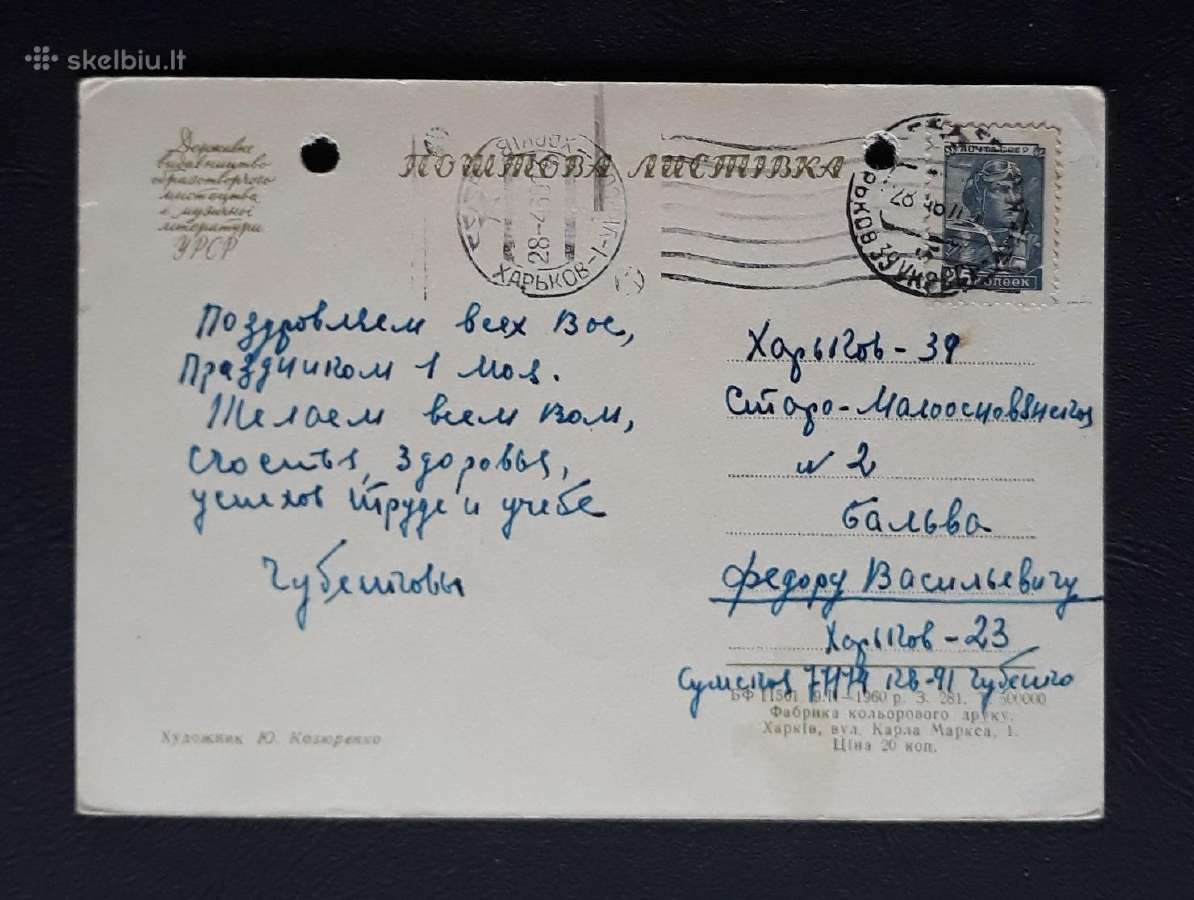 skelbiu.lt
Державне
видавництво
образотворчого
мистецтва
і музичної
літератури
УРСР
ПОШТОВА ЛИСТІВКА
ХАРЬКОВ
28-4
ПОЧТА СССР
Поздровляем всех Вас,
Праздником 1 Моя.
Желаем всем Вам,
Счостья, Здоровья,
успехов труде и учебе
Чубенковы
Харьков-39
Старо-Малоосновянская
№ 2
Бальва
Федору Васильевичу
Харьков-23
Сумская кв-91 Чубенко
БФ 1960 р. З. 281. 500000
Фабрика кольорового друку.
Харків, вул. Карла Маркса, 1.
Ціна 20 коп.
Художник Ю. Козюренко